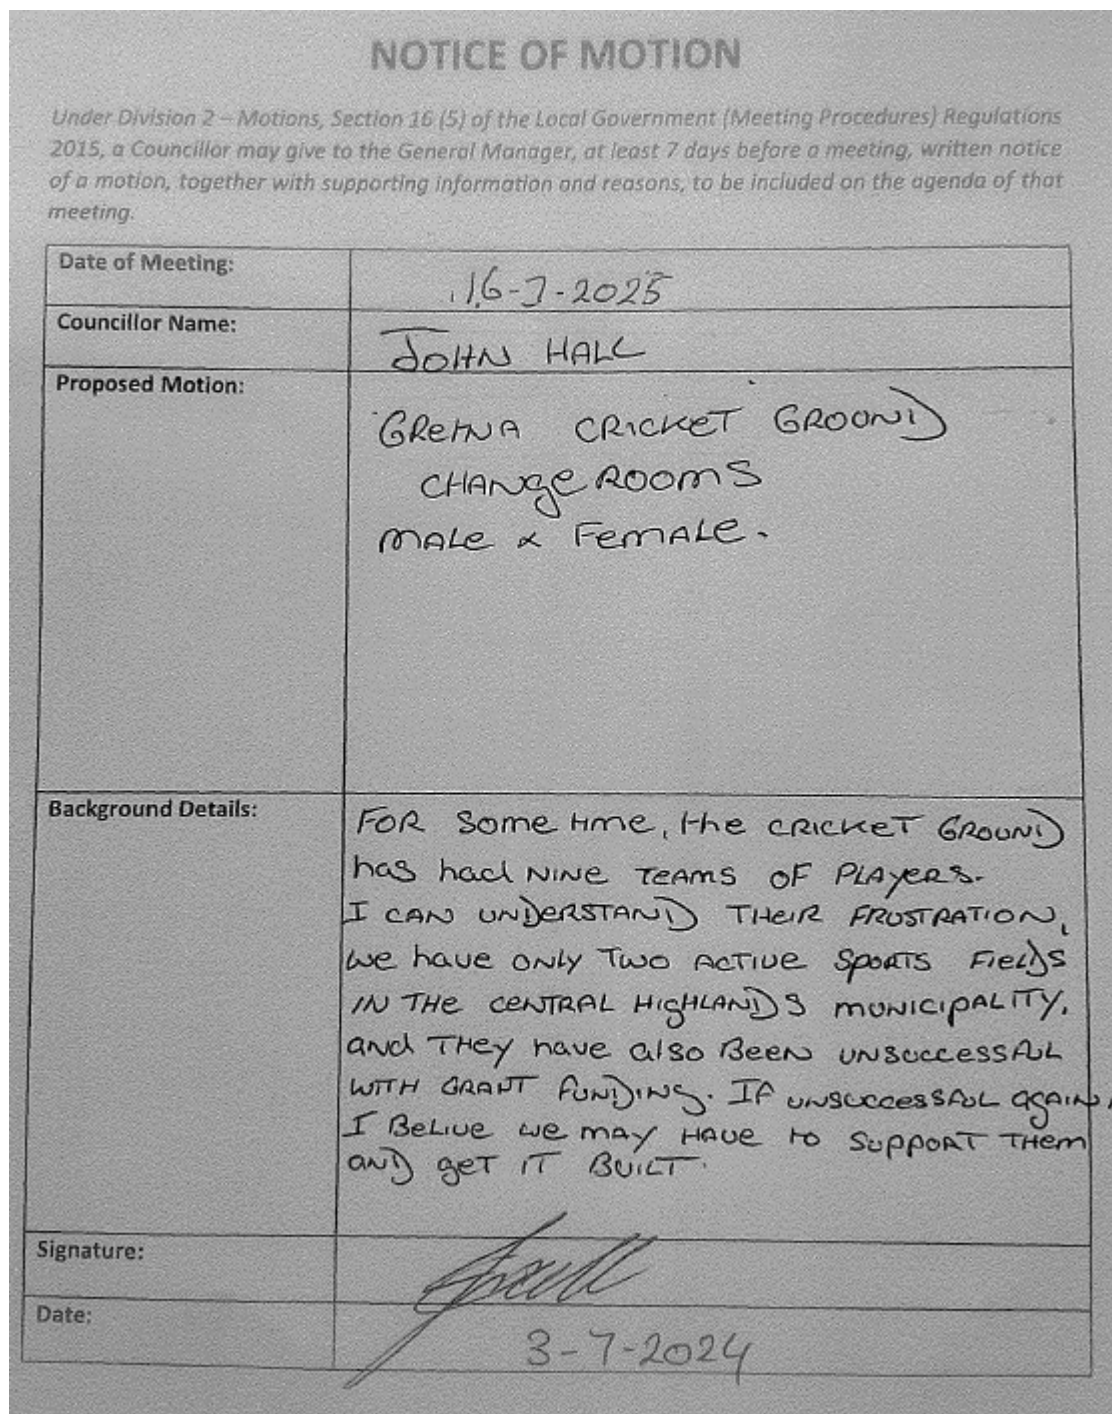 NOTICE OF MOTION
Under Division 2 – Motions, Section 16 (5) of the Local Government (Meeting Procedures) Regulations
2015, a Councillor may give to the General Manager, at least 7 days before a meeting, written notice
of a motion, together with supporting information and reasons, to be included on the agenda of that
meeting.
Date of Meeting: 16-7-2025
Councillor Name: JOHN HALL
Proposed Motion: GRETNA CRICKET GROUND
CHANGE ROOMS
MALE & FEMALE.
Background Details: FOR Some time, the CRICKET GROUND
has had NINE TEAMS OF PLAYERS.
I CAN UNDERSTAND THEIR FRUSTRATION,
We have ONLY TWO ACTIVE SPORTS FIELDS
IN THE CENTRAL HIGHLANDS MUNICIPALITY,
and THEY have also BEEN UNSUCCESSFUL
WITH GRANT FUNDING. IF UNSUCCESSFUL AGAIN,
I BELIVE we may HAVE to SUPPORT THEM
AND get IT BUILT.
Signature:
Date: 3-7-2024